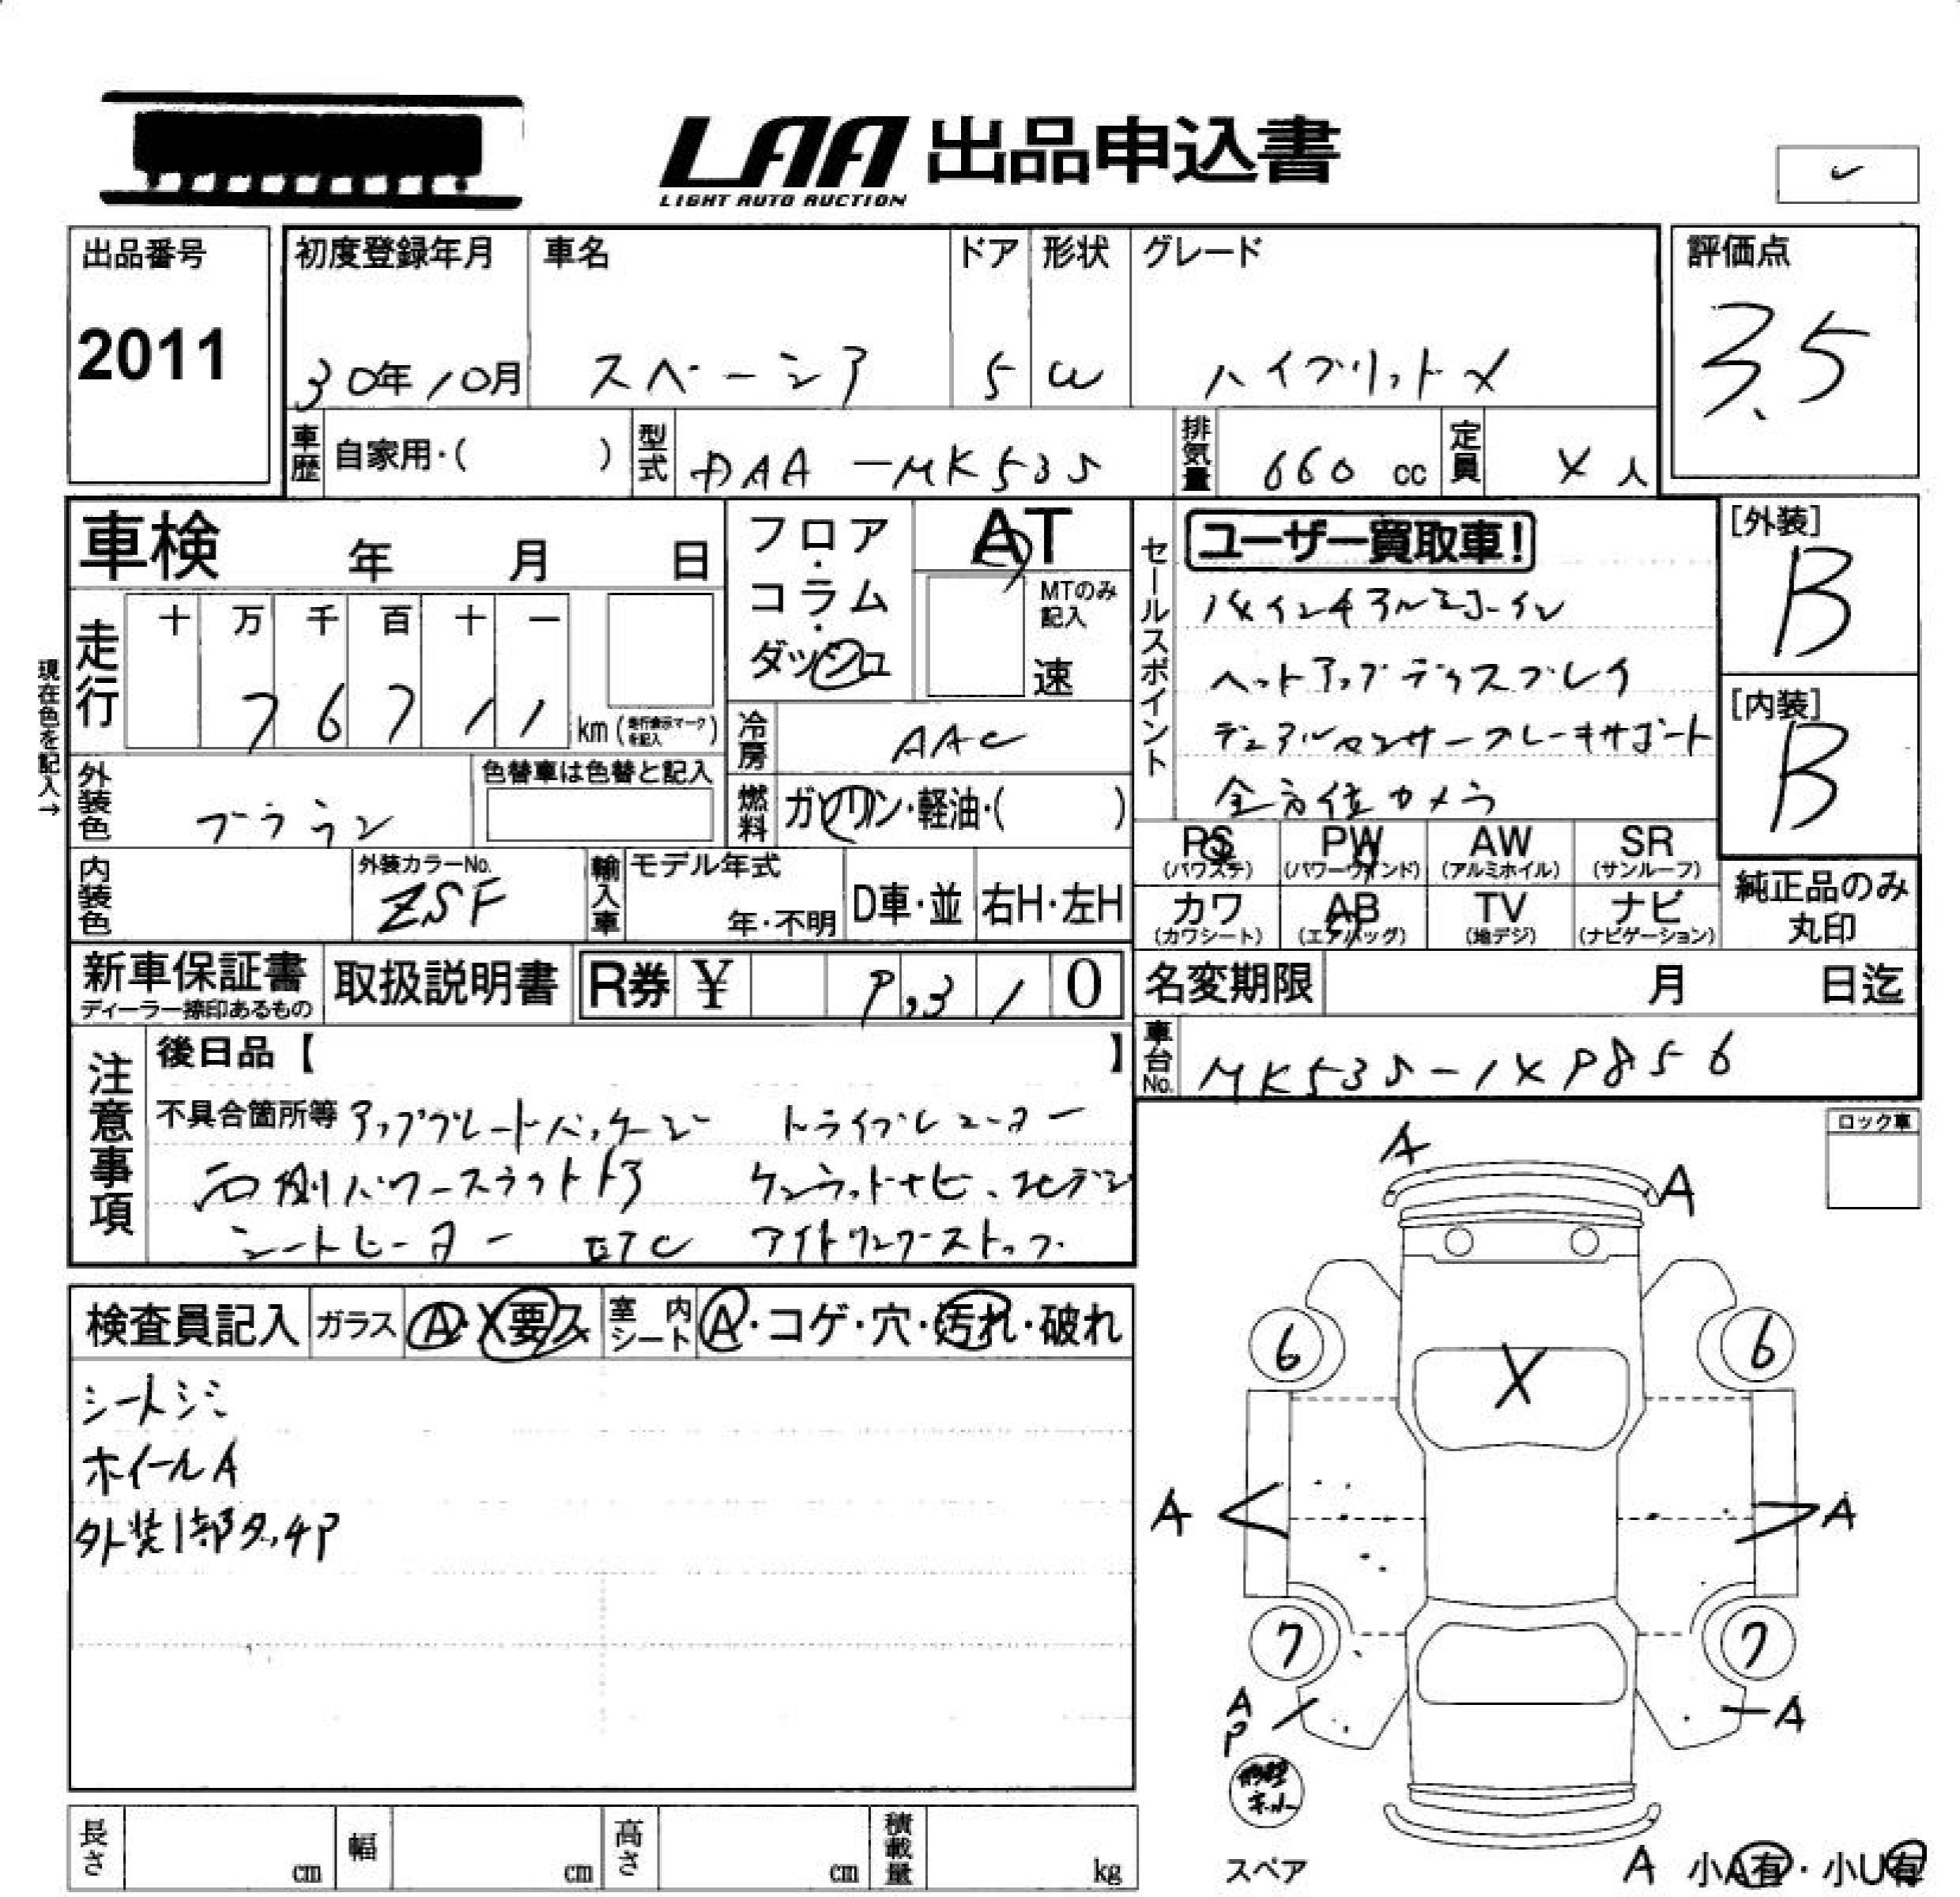 LAA 出品申込書
LIGHT AUTO AUCTION
出品番号
2011
初度登録年月
30年10月
車名
スペーシア
ドア
5
形状
W
グレード
ハイブリットX
評価点
3.5
車歴
自家用・( )
型式
DAA-MK53S
排気量
660 cc
定員
4人
車検 年 月 日
フロア・コラム・ダッシュ
AT
MTのみ記入
速
セールスポイント
ユーザー買取車!
15インチアルミホイル
ヘットアップディスプレイ
デュアルセンサーブレーキサポート
全方位カメラ
[外装]
B
[内装]
B
現在色を記入→
走行
十 万 千 百 十 一
7 6 7 1 1 km (走行表示マークを記入)
冷房
AAC
外装色
ブラウン
色替車は色替と記入
燃料
ガソリン・軽油・( )
PS (パワステ)
PW (パワーウインド)
AW (アルミホイル)
SR (サンルーフ)
カワ (カワシート)
AB (エアバッグ)
TV (地デジ)
ナビ (ナビゲーション)
純正品のみ丸印
内装色
外装カラーNo.
ZSF
輸入車
モデル年式
年・不明
D車・並
右H・左H
新車保証書
ディーラー捺印あるもの
取扱説明書
R券 ¥ 9,310
名変期限 月 日迄
車台No.
MK53S-149856
注意事項
後日品【 】
不具合箇所等 アップグレードパッケージ ドライブレコーダー
両側パワースライドドア ケンウットナビ、フルセグ
シートヒーター ETC アイドリングストップ
ロック車
検査員記入
ガラス
A・X要ス
室内シート
A・コゲ・穴・汚れ・破れ
シートシミ
ホイールA
外装1部タッチP
A
A
6
6
X
A
A
7
7
A
P
A
スペア
A 小A有・小U有
長さ cm
幅 cm
高さ cm
積載量 kg